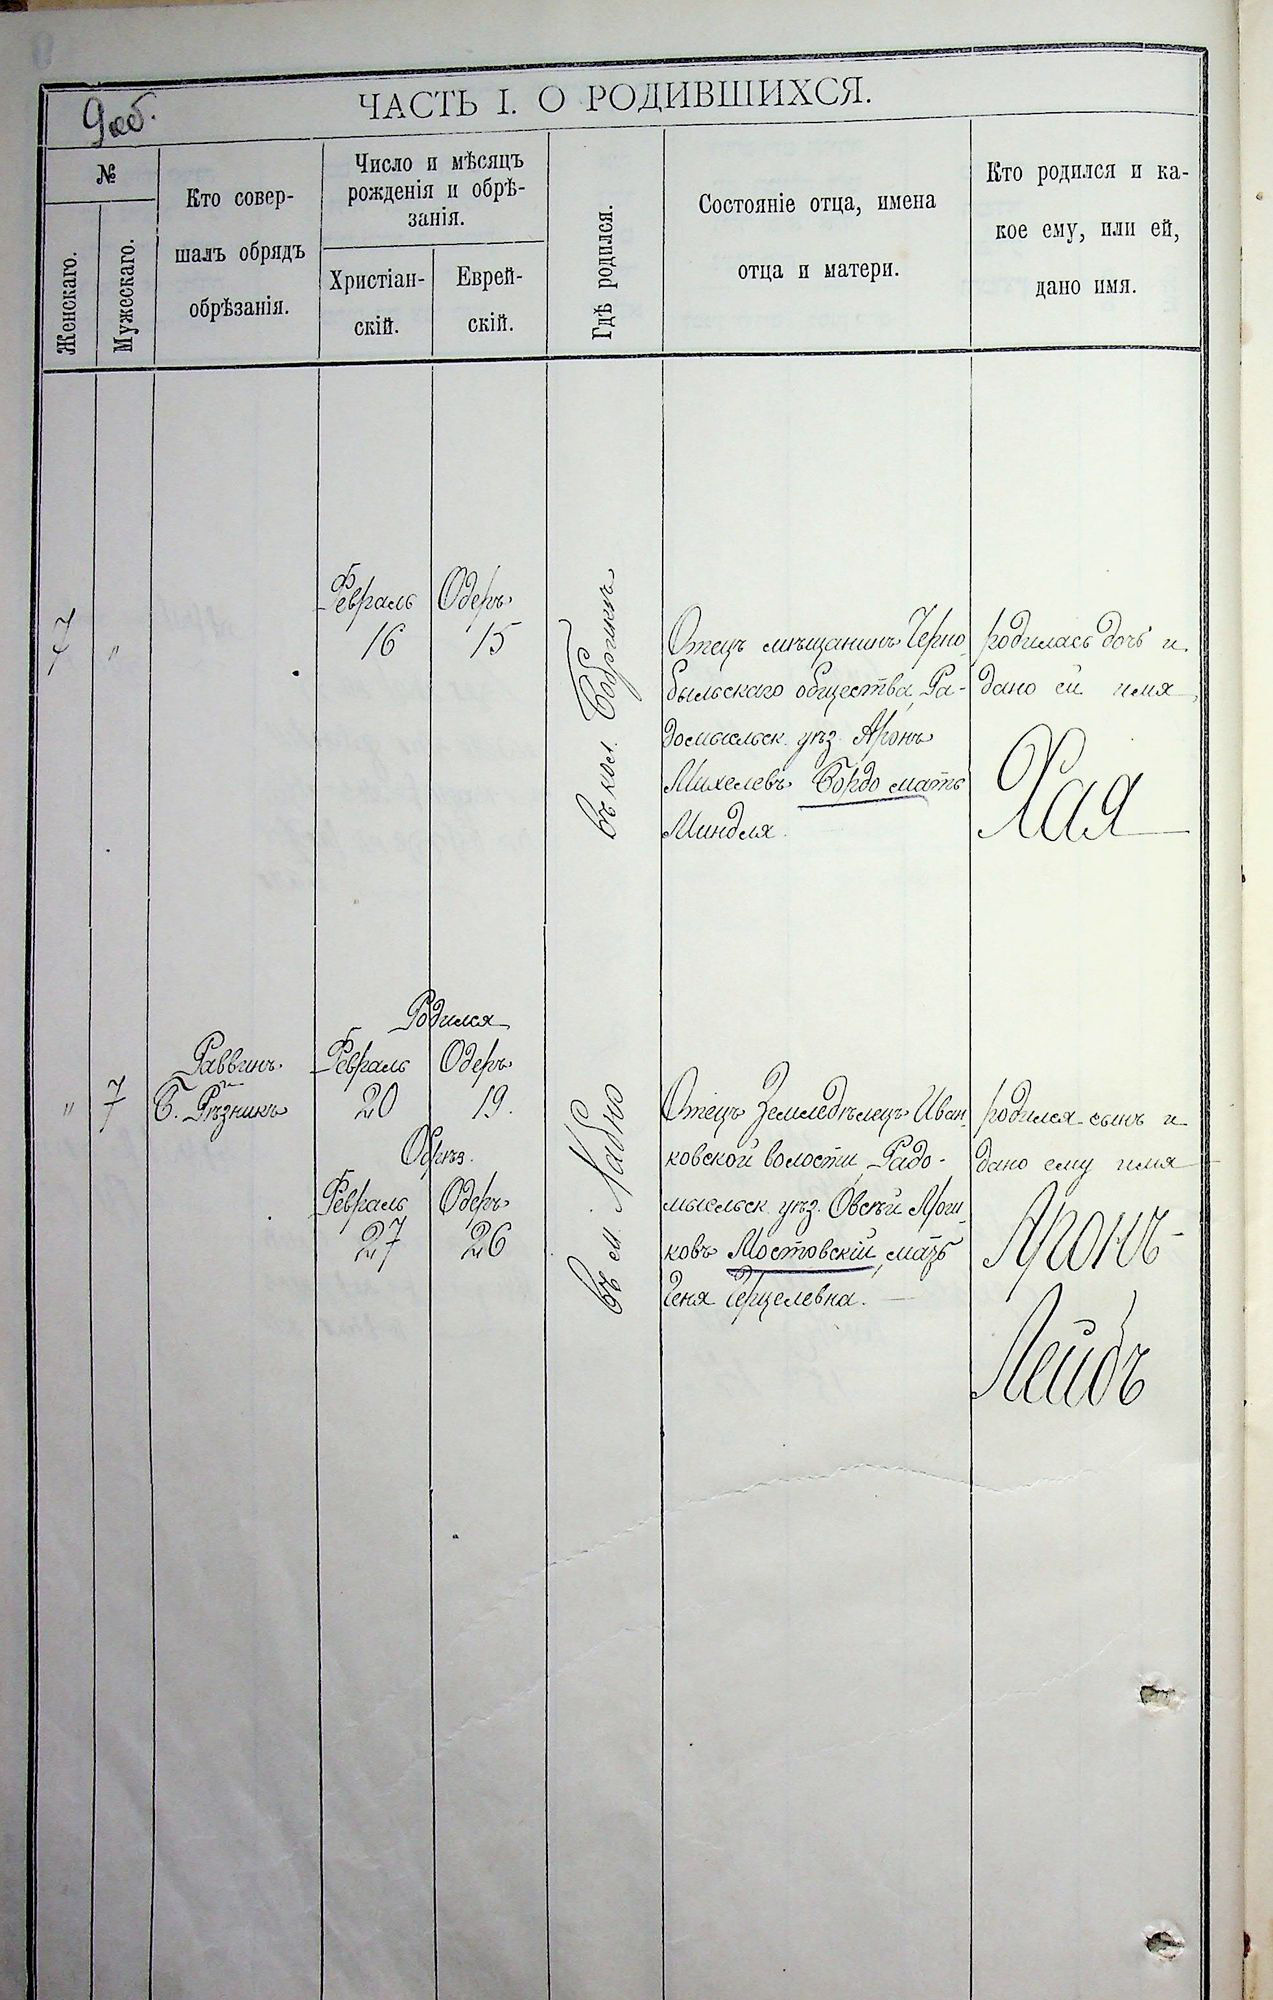 9 об.
ЧАСТЬ I. О РОДИВШИХСЯ.
№
Женскаго.
Мужескаго.
Кто совер-
шалъ обрядъ
обрѣзанія.
Число и мѣсяцъ
рожденія и обрѣ-
занія.
Христіан-
скій.
Еврей-
скій.
Гдѣ родился.
Состояніе отца, имена
отца и матери.
Кто родился и ка-
кое ему, или ей,
дано имя.
7
"
Февраль
16
Одеръ
15
въ кол.
Отецъ мѣщанинъ Черно
быльскаго общества, Ра-
домысльск. уѣз. Аронъ
Михелевъ Бордо мать
Миндля.
родилась дочь и
дано ей имя
Хая
"
7
Раввинъ
Б. Рѣзникъ
Родился
Февраль
20
Одеръ
19.
Обрѣз.
Февраль
27
Одеръ
26
въ м.
Отецъ Земледѣлецъ Иван-
ковской волости, Радо-
мысльск. уѣз. Овсѣй
ковъ Мостовскій, мать
Геня Герцелевна.
родился сынъ и
дано ему имя
Аронъ-
Лейбъ